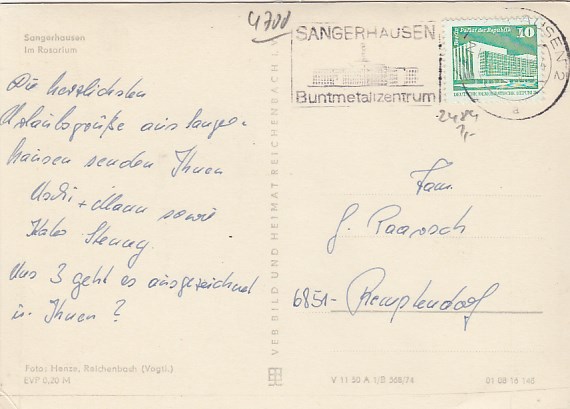 Sangerhausen
Im Rosarium
4700
SANGERHAUSEN
Buntmetallzentrum
Palast der Republik
10
HAUSEN 2
Die herzlichsten
Urlaubsgrüße aus Sanger-
hausen senden Ihnen
Uschi + Mann sowie
Uns 3 geht es ausgezeichnet
u. Ihnen ?
VEB BILD UND HEIMAT REICHENBACH I.V.
2484
Fam.
G. Paarsch
6851- Remptendorf
Foto: Henze, Reichenbach (Vogtl.)
EVP 0,20 M
V 11 50 A 1/B 568/74
01 08 16 146